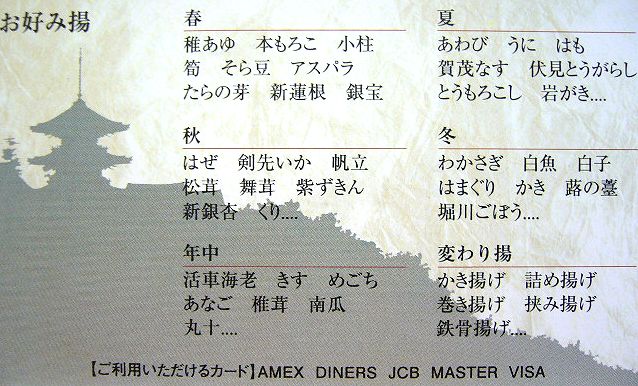 お好み揚
春
稚あゆ 本もろこ 小柱
筍 そら豆 アスパラ
たらの芽 新蓮根 銀宝
夏
あわび うに はも
賀茂なす 伏見とうがらし
とうもろこし 岩がき....
秋
はぜ 剣先いか 帆立
松茸 舞茸 紫ずきん
新銀杏 くり....
冬
わかさぎ 白魚 白子
はまぐり かき 蕗の薹
堀川ごぼう....
年中
活車海老 きす めごち
あなご 椎茸 南瓜
丸十....
変わり揚
かき揚げ 詰め揚げ
巻き揚げ 挟み揚げ
鉄骨揚げ....
【ご利用いただけるカード】AMEX DINERS JCB MASTER VISA